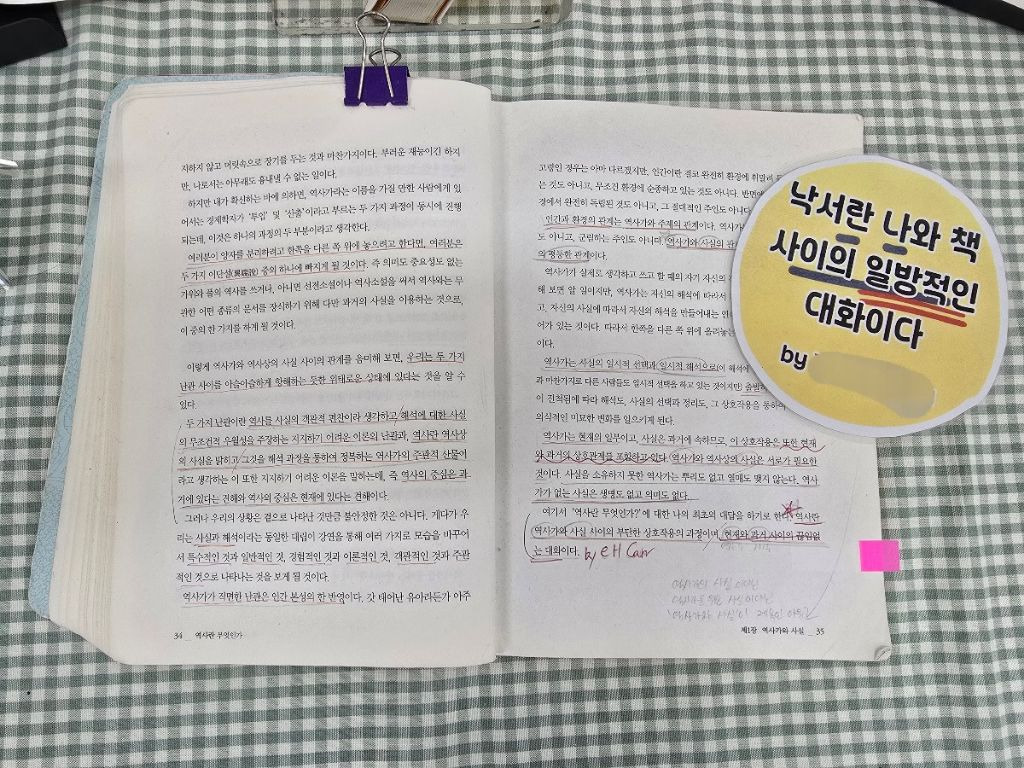 지하지 않고 머릿속으로 장기를 두는 것과 마찬가지이다. 부러운 재능이긴 하지
만, 나로서는 아무래도 흉내낼 수 없는 일이다.
하지만 내가 확신하는 바에 의하면, 역사가라는 이름을 가질 만한 사람에게 있
어서는 경제학자가 '투입' 및 '산출'이라고 부르는 두 가지 과정이 동시에 진행
되는데, 이것은 하나의 과정의 두 부분이라고 생각한다.
여러분이 양자를 분리하려고 한쪽을 다른 쪽 위에 놓으려고 한다면, 여러분은
두 가지 이단설(異端說) 중의 하나에 빠지게 될 것이다. 즉 의미도 중요성도 없는
가위와 풀의 역사를 쓰거나, 아니면 선전소설이나 역사소설을 써서 역사와는 무
관한 어떤 종류의 문서를 장식하기 위해 다만 과거의 사실을 이용하는 것으로,
이 중의 한 가지를 하게 될 것이다.
이렇게 역사가와 역사상의 사실 사이의 관계를 음미해 보면, 우리는 두 가지
난관 사이를 아슬아슬하게 항해하는 듯한 위태로운 상태에 있다는 것을 알 수
있다.
두 가지 난관이란 역사를 사실의 객관적 편찬이라 생각하고 해석에 대한 사실
의 무조건적 우월성을 주장하는 지지하기 어려운 이론의 난관과, 역사란 역사상
의 사실을 밝히고 그것을 해석 과정을 통하여 정복하는 역사가의 주관적 산물이
라고 생각하는 이 또한 지지하기 어려운 이론을 말하는데, 즉 역사의 중심은 과
거에 있다는 견해와 역사의 중심은 현재에 있다는 견해이다.
그러나 우리의 상황은 겉으로 나타난 것만큼 불안정한 것은 아니다. 게다가 우
리는 사실과 해석이라는 동일한 대립이 강연을 통해 여러 가지로 모습을 바꾸어
서 특수적인 것과 일반적인 것, 경험적인 것과 이론적인 것, 객관적인 것과 주관
적인 것으로 나타나는 것을 보게 될 것이다.
역사가가 직면한 난관은 인간 본성의 한 반영이다. 갓 태어난 유아라든가 아주
34 _ 역사란 무엇인가
고령인 경우는 아마 다르겠지만, 인간이란 결코 완전히 환경에 휘말려
는 것도 아니고, 무조건 환경에 순종하고 있는 것도 아니다. 반면에
경에서 완전히 독립된 것도 아니고, 그 절대적인 주인도 아니다.
인간과 환경의 관계는 역사가와 주제의 관계이다. 역사가
도 아니고, 군림하는 주인도 아니다. 역사가와 사실의 관
의 평등한 관계이다.
역사가가 실제로 생각하고 쓰고 할 때의 자기 자신의
해 보면 알 일이지만, 역사가는 자신의 해석에 따라서
고, 자신의 사실에 따라서 자신의 해석을 만들어내는
어가 있는 것이다. 따라서 한쪽을 다른 쪽 위에 올려놓는
역사가는 사실의 일시적 선택과 일시적 해석으로(이 해석에
과 마찬가지로 다른 사람들도 일시적 선택을 하고 있는 것이지만) 출발
이 진척됨에 따라 해석도, 사실의 선택과 정리도, 그 상호작용을 통하여
의식적인 미묘한 변화를 일으키게 된다.
역사가는 현재의 일부이고, 사실은 과거에 속하므로, 이 상호작용은 또한 현재
와 과거의 상호관계를 포함하고 있다. 역사가와 역사상의 사실은 서로가 필요한
것이다. 사실을 소유하지 못한 역사가는 뿌리도 없고 열매도 맺지 않는다. 역사
가가 없는 사실은 생명도 없고 의미도 없다.
여기서 '역사란 무엇인가?'에 대한 나의 최초의 대답을 하기로 한다. 역사란
역사가와 사실 사이의 부단한 상호작용의 과정이며, 현재와 과거 사이의 끊임없
는 대화이다. by EH Carr
제1장 역사가와 사실 _ 35
낙서란 나와 책
사이의 일방적인
대화이다
by